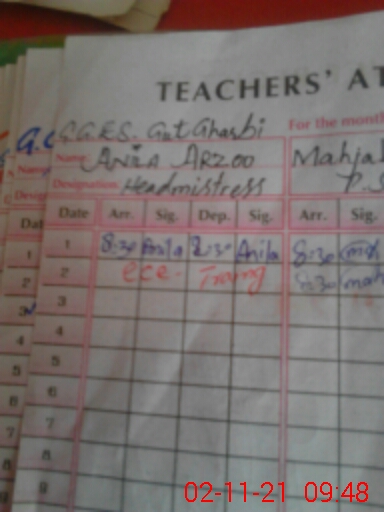 TEACHERS' AT
G.G.E.S. Gut Gharbi For the month
Name: ANILA ARZOO Mahja
Designation Headmistress P.S
Date Arr. Sig. Dep. Sig. Arr. Sig.
1 8:30 Anila 2:30 Anila 8:30
2 ece- Traning 8:30
3
4
5
6
7
8
9
02-11-21 09:48